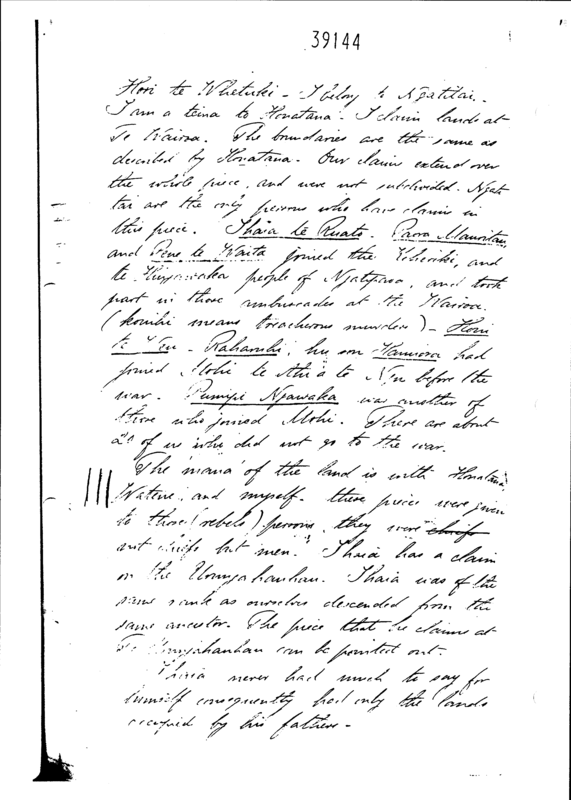 39144
Hori te Whetuki - I belong to Ngatitai.
I am a teina to Honatana - I claim lands at
Te Wairoa. The boundaries are the same as
described by Honatana. Our claims extend over
the whole piece, and were not subdivided. Ngati
tai are the only persons who have claims in
this piece. Ihaia te Ruato. Paora
and Pene te Waita joined the and
te people of Ngatipaoa, and took
part in those ambuscades at the Wairoa.
(kohihi means treacherous murders) - Hori
te - his son had
joined Mohi te Ahi a te Ngu before the
war. Ngawaka was another of
those who joined Mohi. There are about
20 of us who did not go to the war.
The 'mana' of the land is with Honatana
and myself. these pieces were given
to those (rebels) persons, they were chiefs
not chiefs but men." Ihaia has a claim
on the Ihaia was of the
same rank as ourselves descended from the
same ancestor. The piece that he claims at
Te can be pointed out.
Ihaia never had much to say for
himself consequently had only the lands
occupied by his fathers -